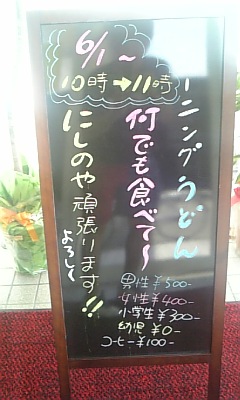 6/1～
10時→11時
ーニングうどん
何でも食べて～
にしのや頑張ります!!
よろしく
男性¥500-
女性¥400-
小学生¥300-
幼児¥0-
コーヒー¥100-